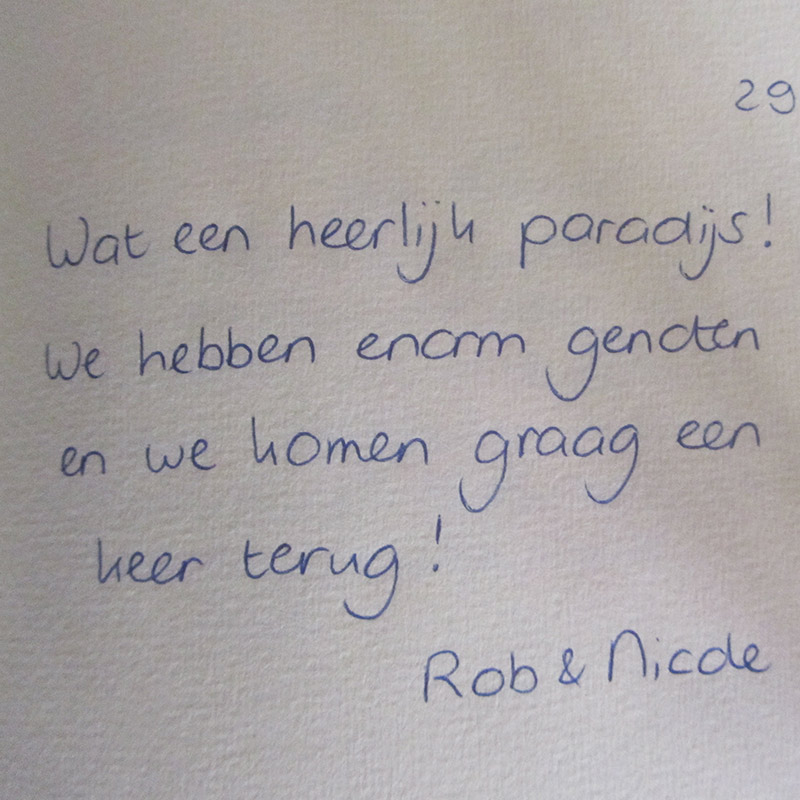 29
Wat een heerlijk paradijs!
We hebben enorm genoten
en we komen graag een
keer terug!
Rob & Nicole